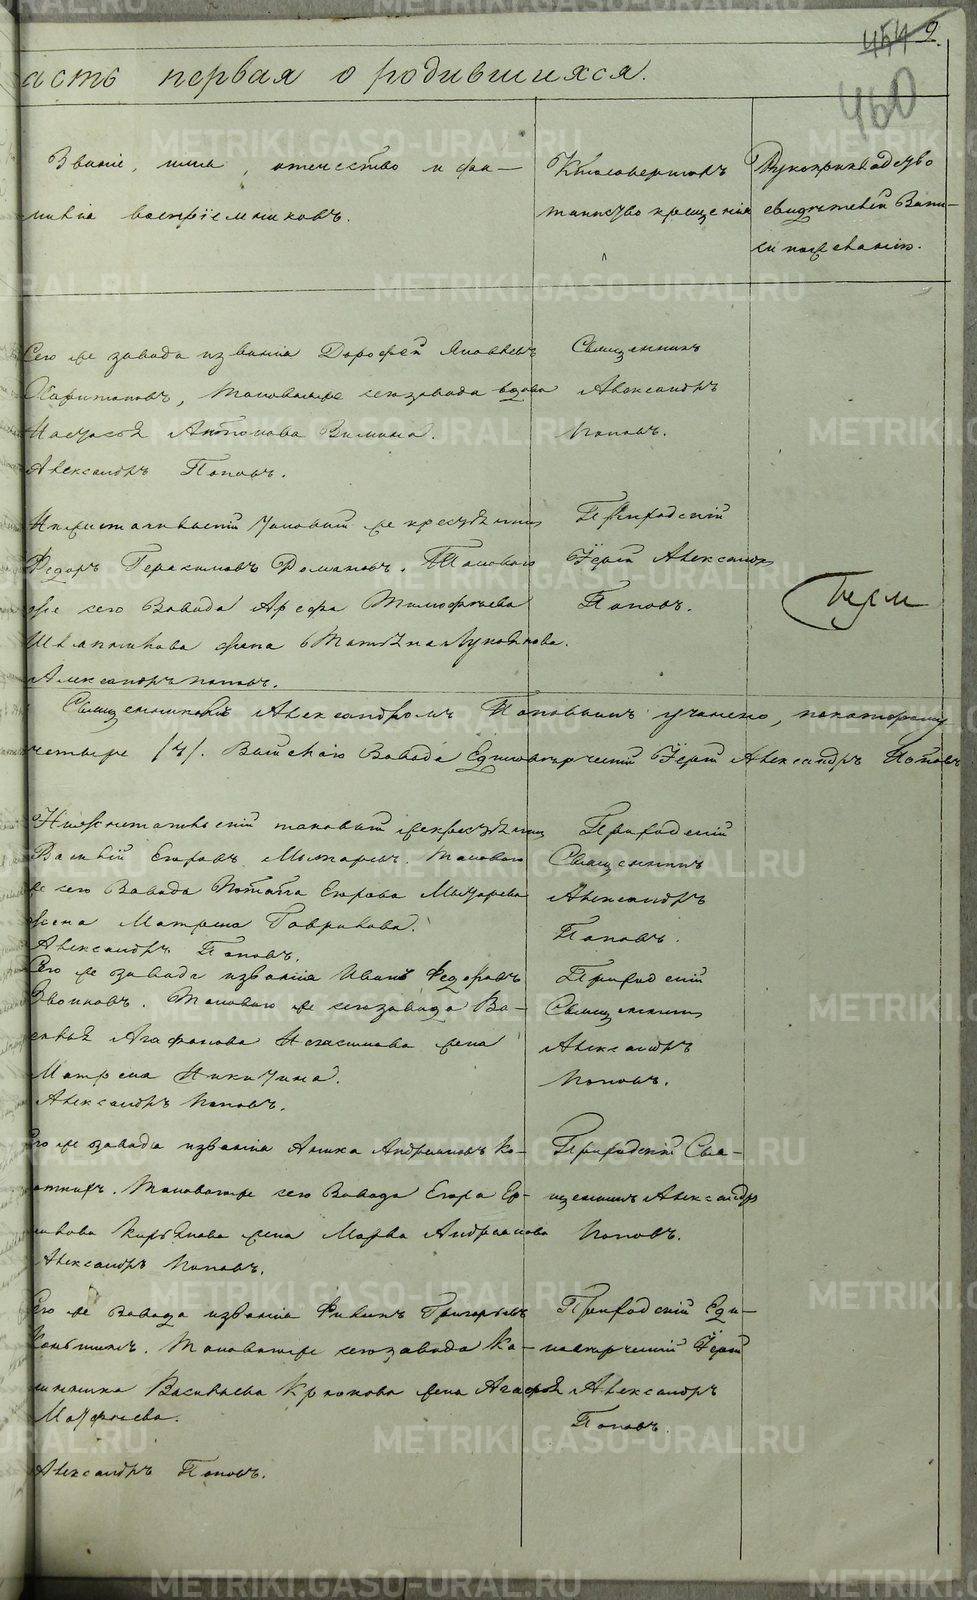 454 9.
460
асть первая о родившихся.
Званіе, имя, отечество и фа-
милія воспріемниковъ.
Кто совершалъ
таинство крещенія
Рукоприкладство
свидѣтелей Запи-
си по желанію.
Сего же завода званія Дорофей Яковлевъ
Харитоновъ, Таковаго же сего завода вдова
Настасья Антонова Зимина.
Александръ Поповъ.
Священникъ
Александръ
Поповъ.
Нижнетагильскій таковый же крестьянинъ
Федоръ Герасимовъ Романовъ. Таковаго
же сего Завода Арефа Тимофѣева
жена Татьяна Лукоянова.
Александръ Поповъ.
Приходскій
Іерей Александръ
Поповъ.
Священникомъ Александромъ Поповымъ учинено, покоторому
четыре /4/. Выйскаго Завода Единовѣрческій Іерей Александръ Поповъ
Нижнетагильскій таковый же крестьянинъ
Василій Егоровъ Мытаревъ. Таковаго
же сего Завода Потапа Егорова Мытарева
жена Матрена Гаврилова.
Александръ Поповъ.
Приходскій
Священникъ
Александръ
Поповъ.
Сего же завода званія Иванъ Федоровъ
Таковаго же сего завода Ва-
силья Агафонова жена
Матрена Никитина.
Александръ Поповъ.
Приходскій
Священникъ
Александръ
Поповъ.
Сего же завода званія Андріановъ
Таковаго же сего Завода Егора Ер-
милова Кирьянова жена Марѳа Андріанова
Александръ Поповъ.
Приходскій Свя-
щенникъ Александръ
Поповъ.
Сего же Завода званія Филипъ Григорьевъ
Таковаго же сего завода Ка-
линника Васильева Крюкова жена Агафья
Матфѣева.
Александръ Поповъ.
Приходскій Еди-
новѣрческій Іерей
Александръ
Поповъ.
METRIKI.GASO-URAL.RU